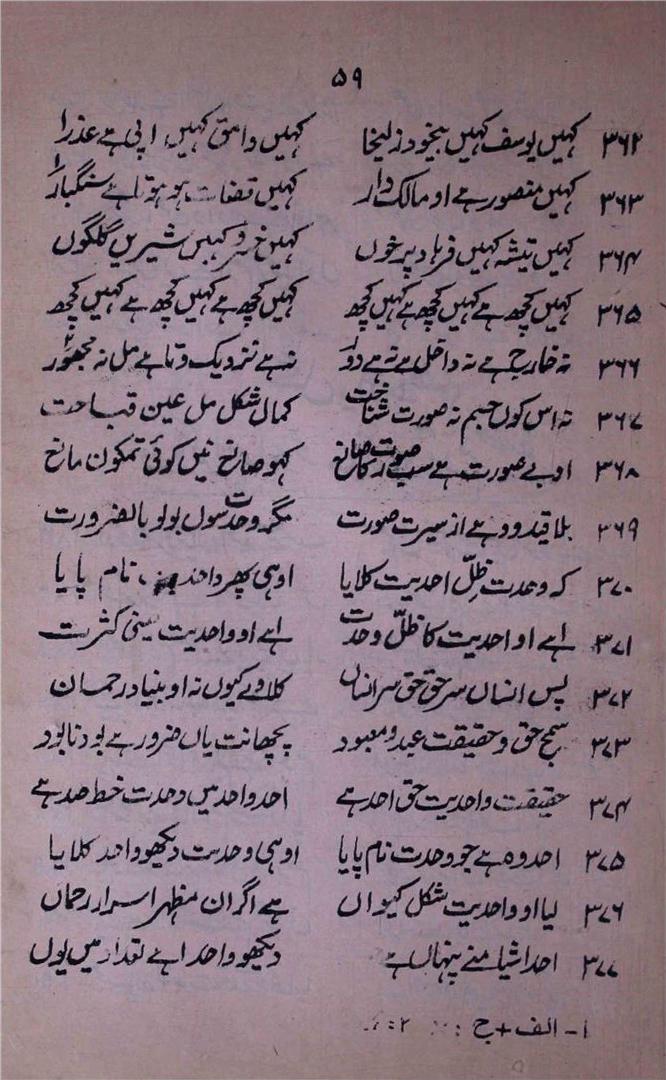 ۵۹
۳۶۲ کہیں یوسف کہیں بیخود زلیخا کہیں وامق کہیں اپی ہے عذرا
۳۶۳ کہیں منصور ہے او مالک دار کہیں قضات ہو ہوتا ہے سنگبار
۳۶۴ کہیں تیشہ کہیں فرہاد پر خوں کہیں خسرو کہیں شیریں گلگوں
۳۶۵ کہیں کچھ ہے کہیں کچھ ہے کہیں کچھ کہیں کچھ ہے کہیں کچھ ہے کہیں کچھ
۳۶۶ نہ خارج ہے نہ داخل ہے نہ ہے دور نہ ہے نزدیک و نا ہے مل نہ مہجور
۳۶۷ نہ اس کوں جسم نہ صورت شناخت کمال شکل مل عین قباحت
۳۶۸ او بے صورت ہے سب صورت کا صانع کہو صانع نیں کوئی تمکون مانع
۳۶۹ بلا قید و و ہے از سیرت صورت مگر وحدت سوں بولو بالضرورت
۳۷۰ کہ وحدت ظلّ احدیت کلایا اوہی پھر واحد نام پایا
۳۷۱ اہے او احدیت کا ظلّ وحدت اہے او واحدیت یعنی کثرت
۳۷۲ پس انساں سر حق حق سر انساں کلاوے کیوں نہ او بنیاد رحمان
۳۷۳ سمج حق و حقیقت عبد و معبود پچھانت یاں ضرور ہے بود نابود
۳۷۴ حقیقت واحدیت حق احد ہے احد واحد میں وحدت خط حد ہے
۳۷۵ احد وہ ہے جو وحدت نام پایا اوہی وحدت دیکھو واحد کلایا
۳۷۶ لیا او واحدیت شکل کیواں ہے اگر ان مظہر اسرار رحماں
۳۷۷ احد اشیا منے پنہاں ہے دیکھو واحد اہے تعداد میں یوں
۱- الف + ح :